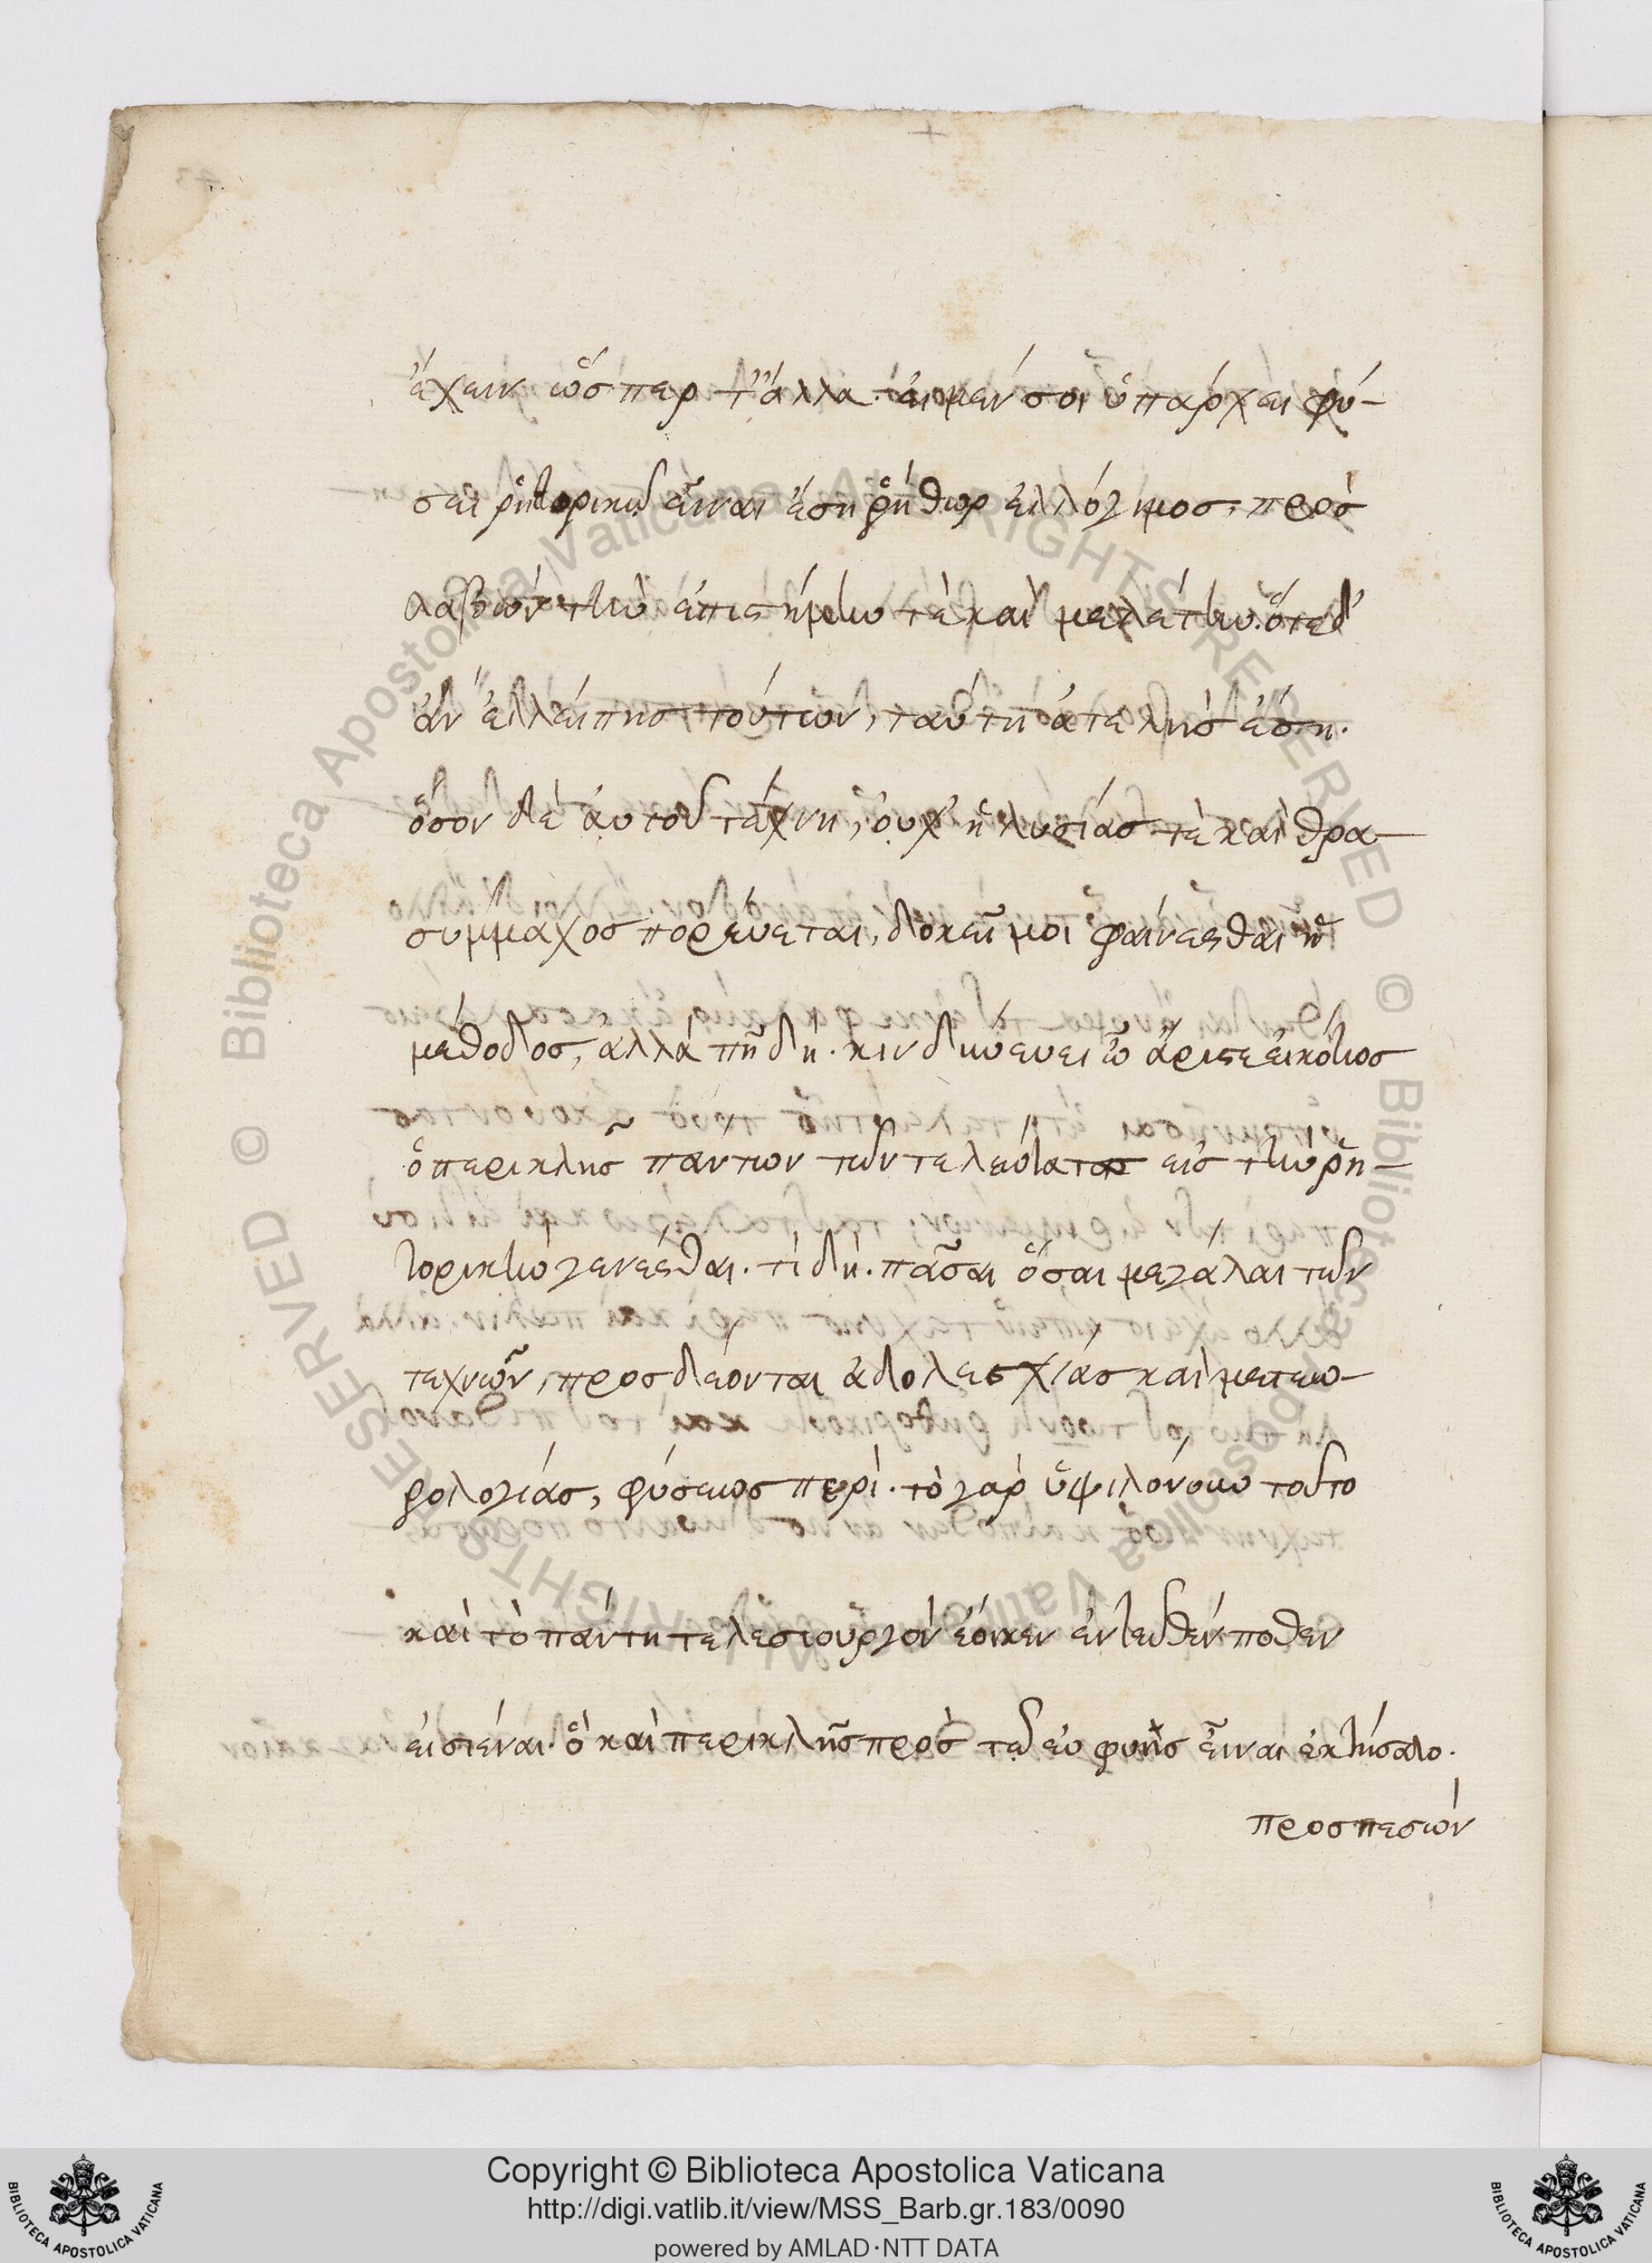 ἔχειν ὥσπερ τἄλλα. εἰ μέν σοι ὑπάρχει φύ-
σει ῥητορικῷ εἶναι ἔση ῥήτωρ ἐλλόγιμος, προσ
λαβὼν τὴν ἐπιστήμην τὲ καὶ μελέτην. ὅτε δ'
ἂν ἐλλείπης τούτων, ταύτη ἀτελὴς ἔση.
ὅσον δὲ αὐτοῦ τέχνη, οὐχ' ἡ λυσίας τὲ καὶ θρα-
σύμμαχος πορεύεται, δοκεῖ μοι φαίνεσθαι ἡ
μέθοδος, ἀλλὰ πῆ δή. κινδυνεύει ὦ ἄριστε εἰκότως
ὁ περικλῆς πάντων τῶν τελεώτατος εἰς τὴν ῥη-
τορικὴν γενέσθαι. τί δή. πᾶσαι ὅσαι μεγάλαι τῶν
τεχνῶν, προσδέονται ἀδολεσχίας καὶ μετεω-
ρολογίας, φύσεως περί. τὸ γὰρ ὑψιλόνουν τοῦτο
καὶ τὸ πάντη τελεσιουργὸν ἔοικεν ἐντεῦθέν ποθεν
εἰσιέναι. ὃ καὶ περικλῆς πρὸς τῷ εὐφυὴς εἶναι ἐκτήσατο.
προσπεσὼν
Copyright © Biblioteca Apostolica Vaticana
http://digi.vatlib.it/view/MSS_Barb.gr.183/0090
powered by AMLAD·NTT DATA
BIBLIOTECA APOSTOLICA VATICANA
BIBLIOTECA APOSTOLICA VATICANA